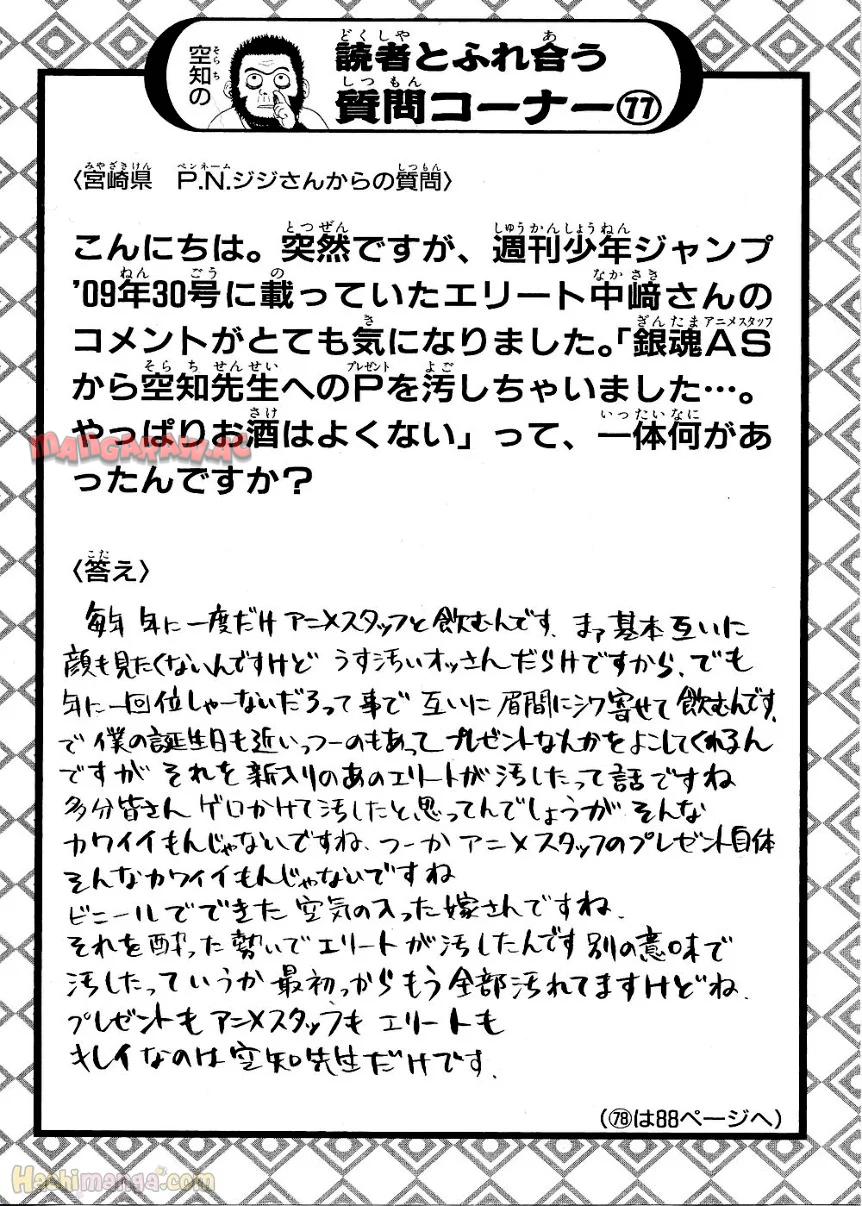 空知の
読者とふれ合う
質問コーナー77
〈宮崎県 P.N.ジジさんからの質問〉
こんにちは。突然ですが、週刊少年ジャンプ
'09年30号に載っていたエリート中﨑さんの
コメントがとても気になりました。「銀魂AS
から空知先生へのPを汚しちゃいました…。
やっぱりお酒はよくない」って、一体何があ
ったんですか?
〈答え〉
毎年 年に一度だけ アニメスタッフと飲むんです。まァ基本互いに
顔も見たくないんですけど うす汚いオッさんだらけですから、でも
年に一回位しゃーないだろって事で 互いに眉間にシワ寄せて飲むんです。
で 僕の誕生日も近いっつーのもあって プレゼントなんかをよこしてくれるん
ですが それを新入りのあのエリートが汚したって話ですね
多分皆さん ゲロかけて汚したと思ってんでしょうが そんな
カワイイもんじゃないですね、つーか アニメスタッフのプレゼント自体
そんなカワイイもんじゃないですね
ビニールでできた 空気の入った嫁さんですね。
それを酔った勢いでエリートが汚したんです 別の意味で
汚したっていうか 最初っからもう全部汚れてますけどね。
プレゼントも アニメスタッフも エリートも
キレイなのは空知先生だけです。
(78は88ページへ)
MANGARAW.AC
Hachimanga.com